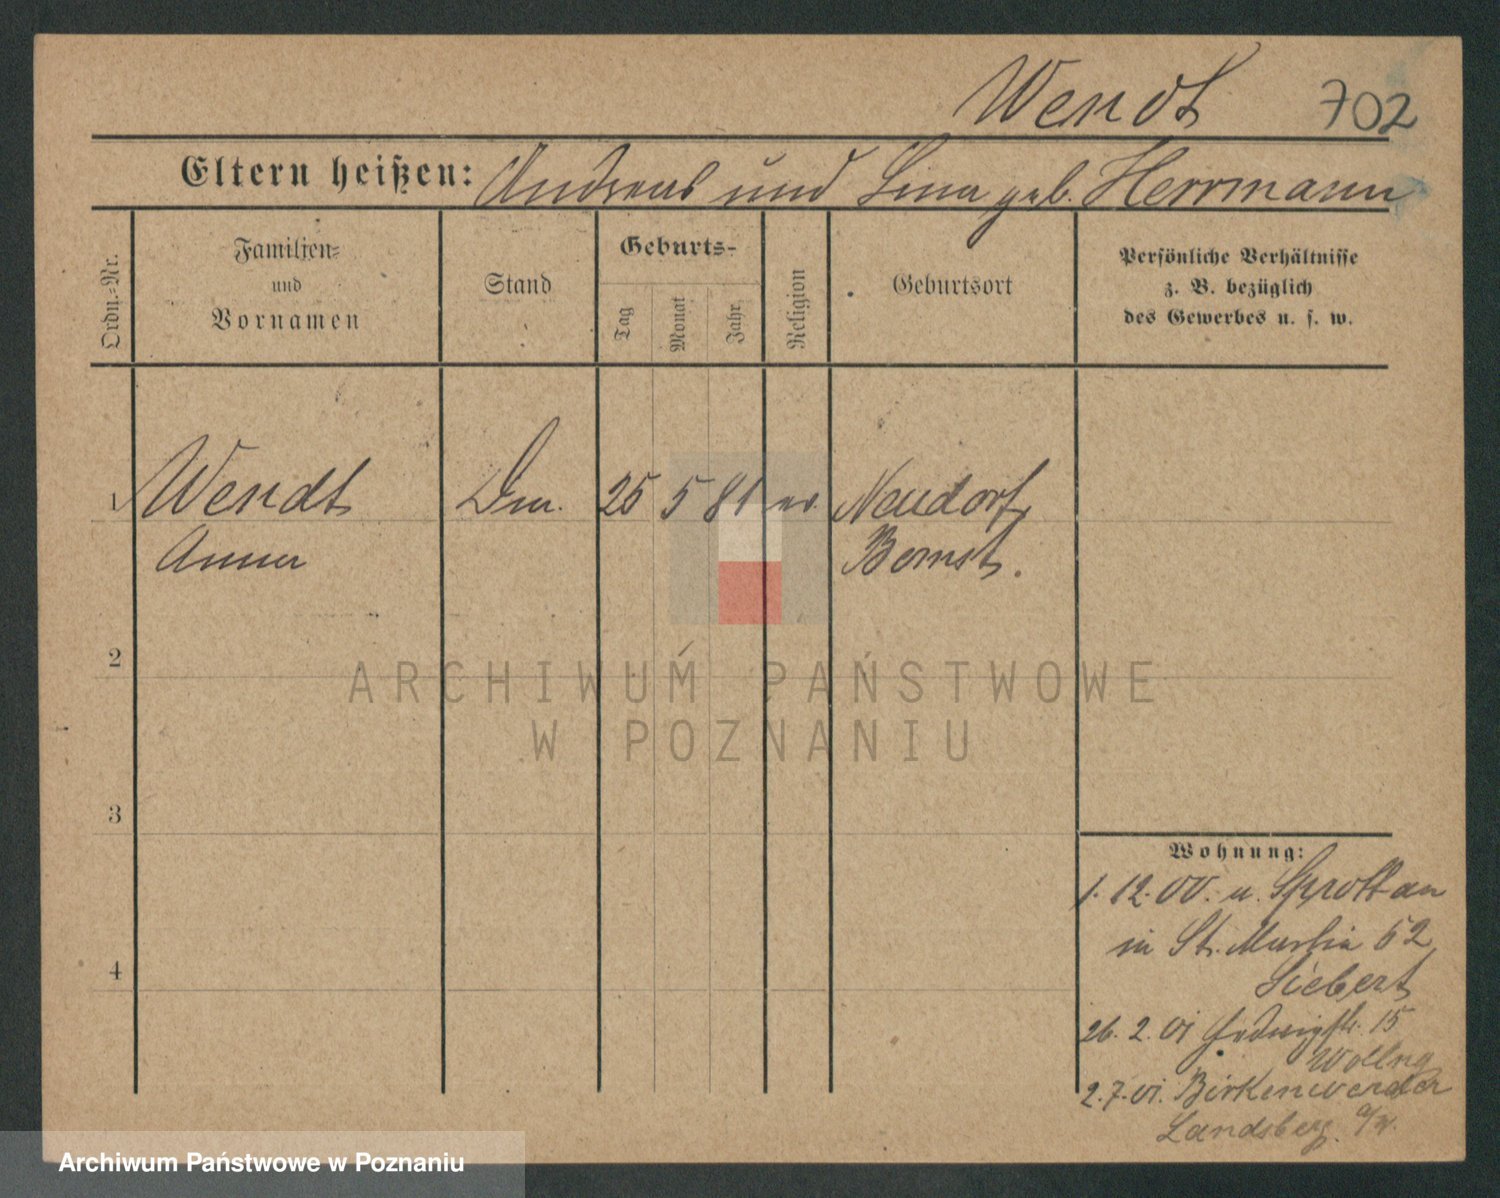 Wendt 702
Eltern heißen: Andreas und Lina geb. Herrmann
Ordn.-Nr.
Familien-
und
Vornamen
Stand
Geburts-
Tag
Monat
Jahr
Religion
Geburtsort
Persönliche Verhältnisse
z. B. bezüglich
des Gewerbes u. s. w.
1 Wendt Dm. 25 5 81 ev. Neudorf
Anna Bomst.
2
ARCHIWUM PAŃSTWOWE
W POZNANIU
3
Wohnung:
1. 12. 00. v. Sprottau
in St. Martin 62
Siebert
4
26. 2. 01 Hedwigstr. 15
2. 7. 01. Birkenwerder
Landsberg a/W.
Archiwum Państwowe w Poznaniu